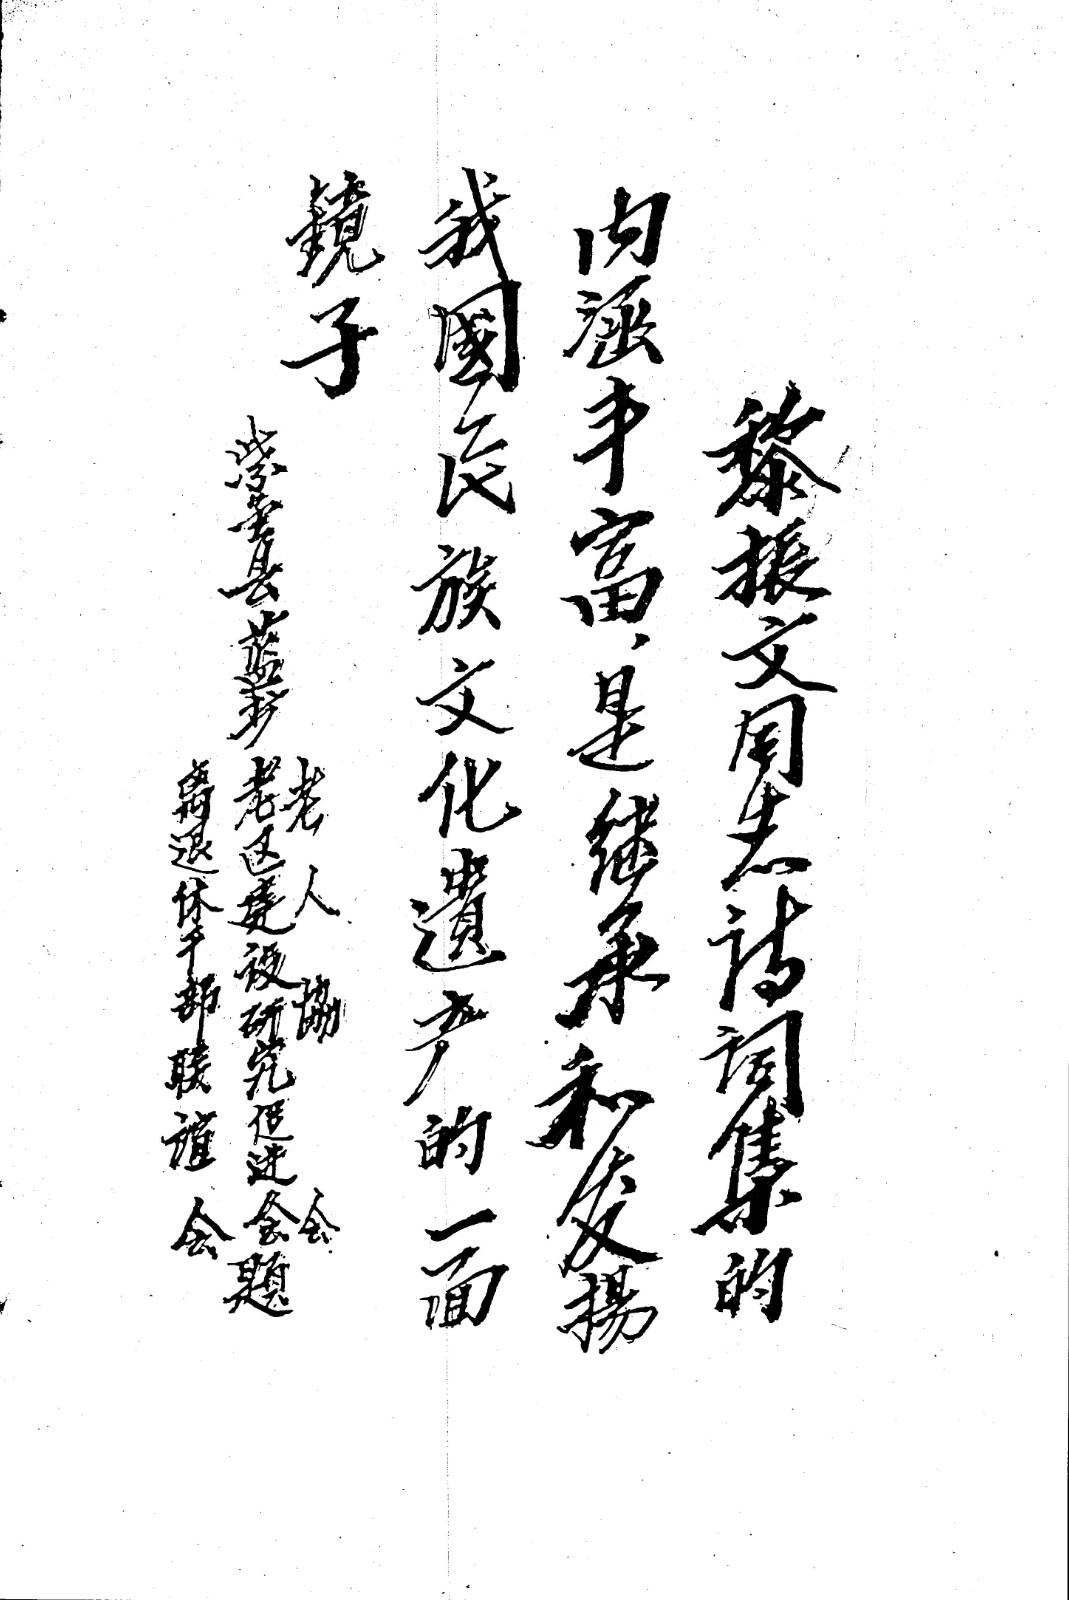 黎振文同志诗词集的
内涵丰富，是继承和发揚
我國民族文化遗产的一面
鏡子
紫金县蓝塘
老人協会
老区建设研究促进会题
离退休干部联谊会